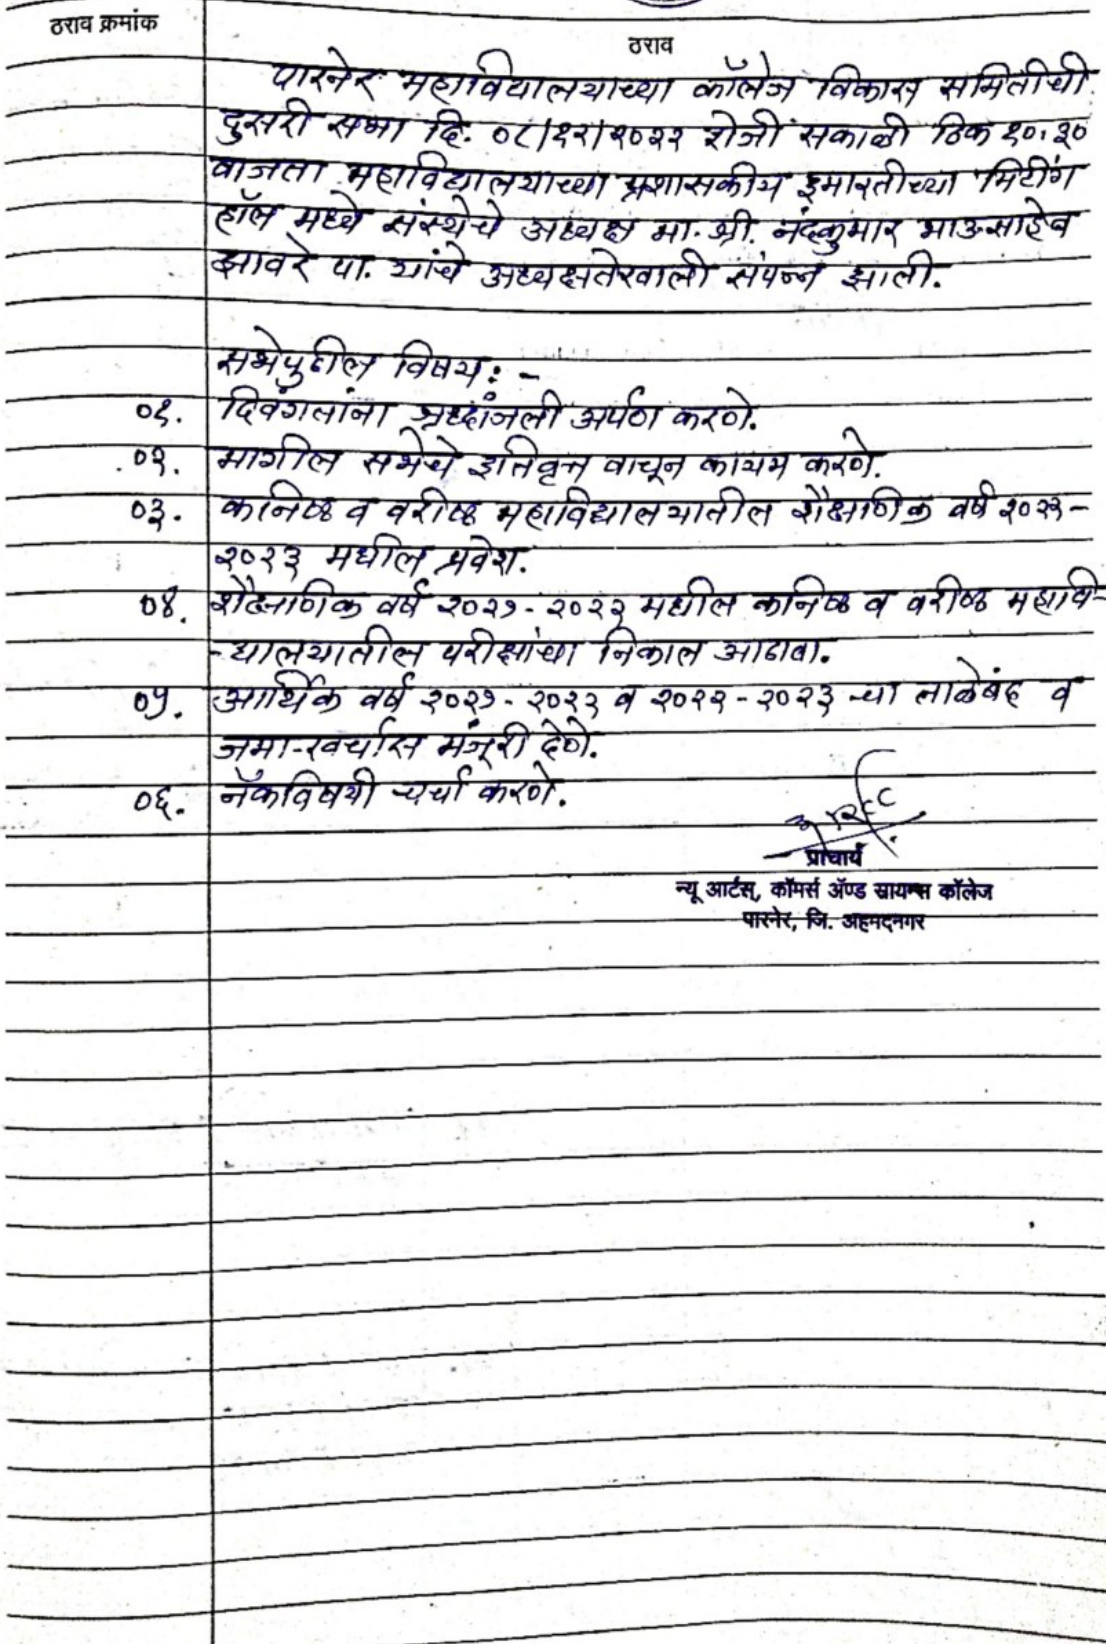 ठराव क्रमांक
ठराव
पारनेर महाविद्यालयाच्या कॉलेज विकास समितीची
दुसरी सभा दि. ०८/१२/२०२२ रोजी सकाळी ठिक १०.३०
वाजता महाविद्यालयाच्या प्रशासकीय इमारतीच्या मिटींग
हॉल मध्ये संस्थेचे अध्यक्ष मा. श्री. नंदकुमार भाऊसाहेब
झावरे पा. यांचे अध्यक्षतेखाली संपन्न झाली.
सभेपुढील विषय: -
०१. दिवंगतांना श्रध्दांजली अर्पण करणे.
०२. मागील सभेचे इतिवृत्त वाचून कायम करणे.
०३. कनिष्ठ व वरीष्ठ महाविद्यालयातील शैक्षणिक वर्ष २०२२-
२०२३ मधील प्रवेश.
०४. शैक्षणिक वर्ष २०२१-२०२२ मधील कनिष्ठ व वरीष्ठ महावि-
-द्यालयातील परीक्षांचा निकाल आढावा.
०५. आर्थिक वर्ष २०२१-२०२२ व २०२२-२०२३ च्या ताळेबंद व
जमा-खर्चास मंजूरी देणे.
०६. नॅकविषयी चर्चा करणे.
प्राचार्य
न्यू आर्टस्, कॉमर्स ॲण्ड सायन्स कॉलेज
पारनेर, जि. अहमदनगर